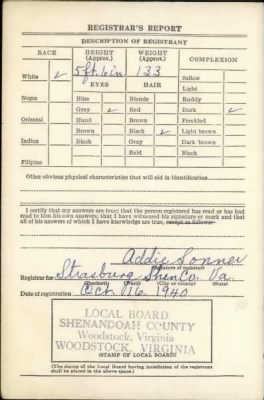 REGISTRAR'S REPORT
DESCRIPTION OF REGISTRANT
RACE HEIGHT (Approx.) WEIGHT (Approx.) COMPLEXION
White ✓ 5 ft. 6 in 133 Sallow
EYES HAIR Light
Negro Blue Blonde Ruddy
Gray ✓ Red Dark ✓
Oriental Hazel Brown Freckled
Brown Black ✓ Light brown
Indian Black Gray Dark brown
Bald Black
Filipino
Other obvious physical characteristics that will aid in identification
I certify that my answers are true; that the person registered has read or has had
read to him his own answers; that I have witnessed his signature or mark and that
all of his answers of which I have knowledge are true, except as follows:
Addie Sonner
(Signature of registrar)
Registrar for Strasburg Shen Co. Va.
(Precinct) (City or county) (State)
Date of registration Oct 16 1940
LOCAL BOARD
SHENANDOAH COUNTY
Woodstock, Virginia
WOODSTOCK, VIRGINIA
(STAMP OF LOCAL BOARD)
(The stamp of the Local Board having jurisdiction of the registrant
shall be placed in the above space.)